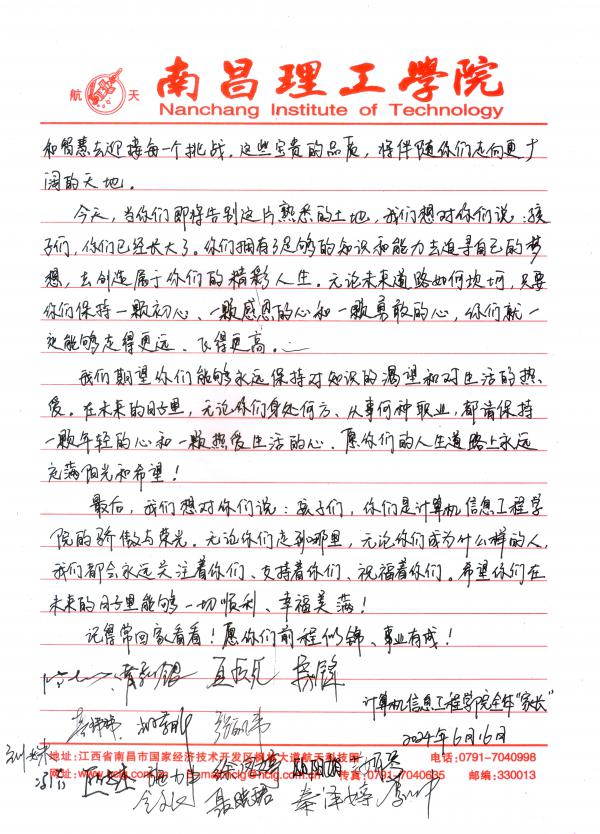 航 天
南昌理工學院
Nanchang Institute of Technology
和智慧去迎接每一个挑战。这些宝贵的品质，将伴随你们走向更广
阔的天地。
今天，当你们即将告别这片熟悉的土地，我们想对你们说：孩
子们，你们已经长大了。你们拥有了足够的知识和能力去追寻自己的梦
想，去创造属于你们的精彩人生。无论未来道路如何坎坷，只要
你们保持一颗初心、一颗感恩的心和一颗勇敢的心，你们就一
定能够走得更远、飞得更高。
我们期望你们能够永远保持对知识的渴望和对生活的热
爱。在未来的日子里，无论你们身处何方、从事何种职业，都请保持
一颗年轻的心和一颗热爱生活的心。愿你们的人生道路上永远
充满阳光和希望！
最后，我们想对你们说：孩子们，你们是计算机信息工程学
院的骄傲与荣光。无论你们走到哪里，无论你们成为什么样的人，
我们都会永远关注着你们、支持着你们、祝福着你们。希望你们在
未来的日子里能够一切顺利、幸福美满！
记得常回家看看！愿你们前程似锦、事业有成！
计算机信息工程学院全体“家长”
2024年6月6日
地址：江西省南昌市国家经济技术开发区枫林大道航天科技园 电话：0791-7040998
传真：0791-7040635 邮编：330013
聂晓珺 秦泽婷